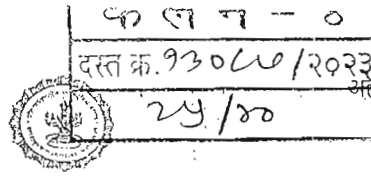 क ल न - ०
दस्त क्र. १३०८७/२०२३
२५/४०